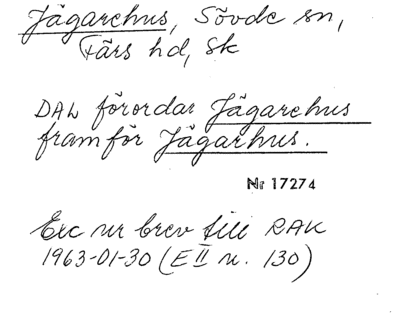 Jägarehus, Sövde sn,
Färs hd, Sk
DAL förordar Jägarehus
framför Jägarhus.
Nr 17274
Exc ur brev till RAK
1963-01-30 (E II n. 130)